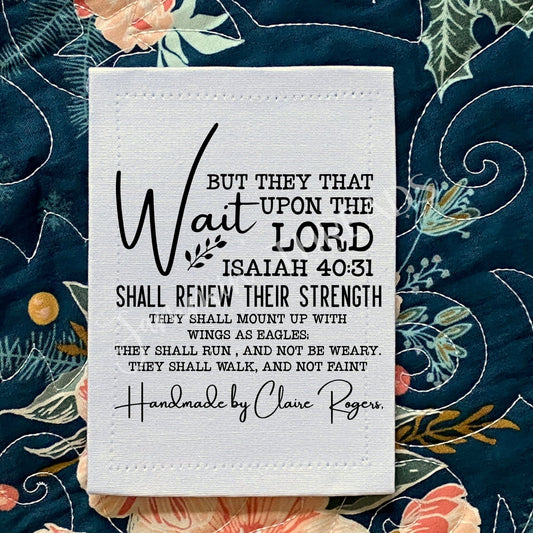 BUT THEY THAT
Wait UPON THE
LORD
ISAIAH 40:31
SHALL RENEW THEIR STRENGTH
THEY SHALL MOUNT UP WITH
WINGS AS EAGLES;
THEY SHALL RUN , AND NOT BE WEARY.
THEY SHALL WALK, AND NOT FAINT
Handmade by Claire Rogers,